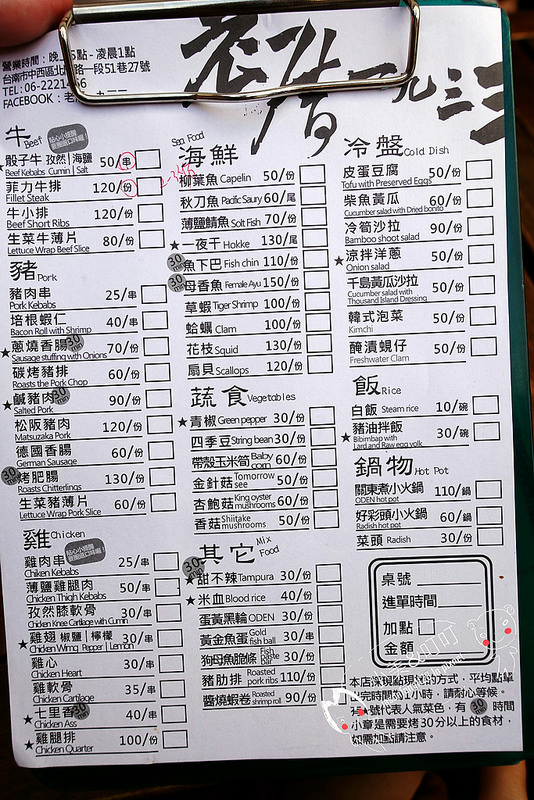 營業時間：晚上5點 - 凌晨1點
台南市中西區北 路一段51巷27號
TEL：06-2221
FACEBOOK：老
一九三三
牛 Beef
骰子牛 孜然|海鹽 50/串
Beef Kebabs Cumin | Salt
菲力牛排 120/份
Fillet Steak
牛小排 120/份
Beef Short Ribs
生菜牛薄片 80/份
Lettuce Wrap Beef Slice
豬 Pork
豬肉串 25/串
Pork Kebabs
培根蝦仁 40/串
Bacon Roll with Shrimp
★蔥燒香腸 30 70/份
Sausage stuffing with Onions
碳烤豬排 60/份
Roasts the Pork Chop
★鹹豬肉 30 90/份
Salted Pork
松阪豬肉 120/份
Matsuzaka Pork
德國香腸 60/份
German Sausage
30 烤肥腸 130/份
Roasts Chitterlings
生菜豬薄片 60/份
Lettuce Wrap Pork Slice
雞 Chicken
雞肉串 25/串
Chiken Kebabs
薄鹽雞腿肉 50/串
Chicken Thigh Kebabs
孜然膝軟骨 30/份
Chicken Knee Cartilage with Cumin
★雞翅 椒鹽|檸檬 30/串
Chicken Wimg Pepper | Lemon
雞心 30/串
Chicken Heart
雞軟骨 35/串
Chicken Cartilage
★七里香 30 40/串
Chicken Ass
★雞腿排 100/份
Chicken Quarter
Sea Food
海鮮
柳葉魚 Capelin 50/份
秋刀魚 Pacific Saury 60/尾
薄鹽鯖魚 Solt Fish 70/份
★一夜干 Hokke 130/尾
30 魚下巴 Fish chin 110/份
30 母香魚 Female Ayu 150/份
草蝦 Tiger Shrimp 100/份
蛤蠣 Clam 100/份
花枝 Squid 130/份
扇貝 Scallops 120/份
蔬食 Vegetables
★青椒 Green pepper 30/份
四季豆 String bean 30/份
帶殼玉米筍 Baby corn 60/份
金針菇 Tomorrow see 50/份
杏鮑菇 King oyster mushrooms 60/份
香菇 Shiitake mushrooms 50/份
其它 Mix Food
30
★甜不辣 Tampura 30/份
★米血 Blood rice 40/份
蛋黃黑輪 ODEN 30/份
黃金魚蛋 Gold fish ball 30/串
狗母魚脆條 Fish paste bar 30/份
豬肋排 Roasted pork ribs 110/份
醬燒蝦卷 Roasted shrimp roll 90/份
冷盤 Cold Dish
皮蛋豆腐 50/份
Tofu with Preserved Eggs
柴魚黃瓜 60/份
Cucumber salad with Dried bonito
冷筍沙拉 90/份
Bamboo shoot salad
★涼拌洋蔥 50/份
Onion salad
千島黃瓜沙拉 50/份
Cucumber salad with Thousand Island Dressing
韓式泡菜 50/份
Kimchi
醃漬蜆仔 50/份
Freshwater Clam
飯 Rice
白飯 Steam rice 10/碗
★豬油拌飯 30/碗
Bibimbap with Lard and Raw egg yolk
鍋物 Hot Pot
關東煮小火鍋 110/鍋
ODEN hot pot
好彩頭小火鍋 60/鍋
Radish hot pot
菜頭 Radish 30/份
桌號
進單時間
加點
金額
本店深現點現烤的方式，平均點單
出完時間在1小時，請耐心等候。
有★號代表人氣菜色，有 30 時間
小章是需要烤30分以上的食材，
如需加點請注意。